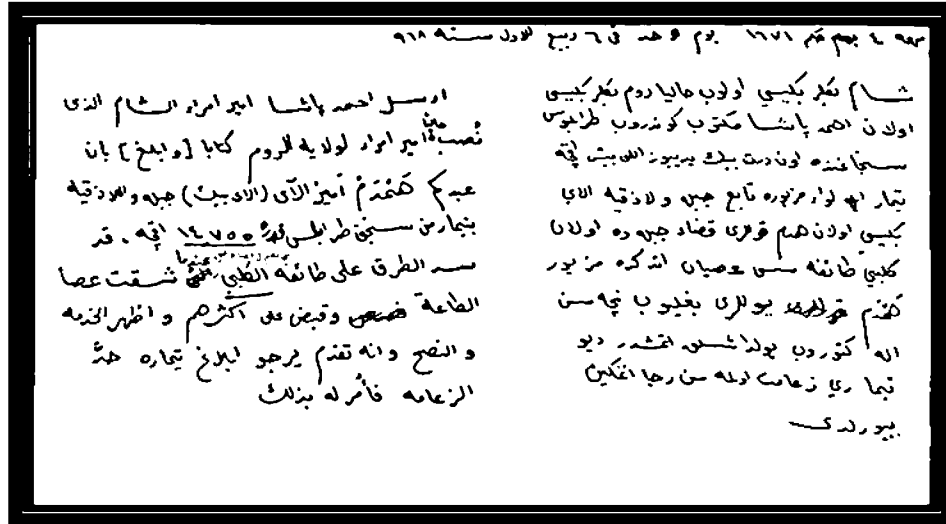 يوم احد فى ٦ ربيع الاول سنه ٩١٨
شام بكلربكيسي اولوب حاليا روم بكلربكيسى
اولان احمد پاشا مكتوب كوندروب طرابلوس
سنجاغنده اون درت بيك يديوز اللى بيش اقچه
تيمار لواء مزبوره تابع جبله ولاذقيه الاى
بكيسى اولان قوللرى قضاء جبله ده اولان
طائفه سى عصيان اتدكده مزبور
يوللرى بغليوب نچه سن
اله كتوروب يولداشلق اتمشدر ديو
تيمارى زعامت اولمه سن رجا اتمكين
بيورلدى
ارسل احمد پاشا امير امراء الشام الذى
نُصب امير امراء لولاية الروم كتابا [وابلغ] بان
عبدكم امير الآى (الاى بيك) جبله واللاذقيه
بتيمار من سنجق طرابلس قدره ١٤٧٥٥ اقچه، قد
سد الطرق على طائفه شقت عصا
الطاعة وقبض على اكثرهم و اظهر الخدمه
و النصح وانه تقدم يرجو ابلاغ تيماره حدَّ
الزعامه فأمر له بذلك